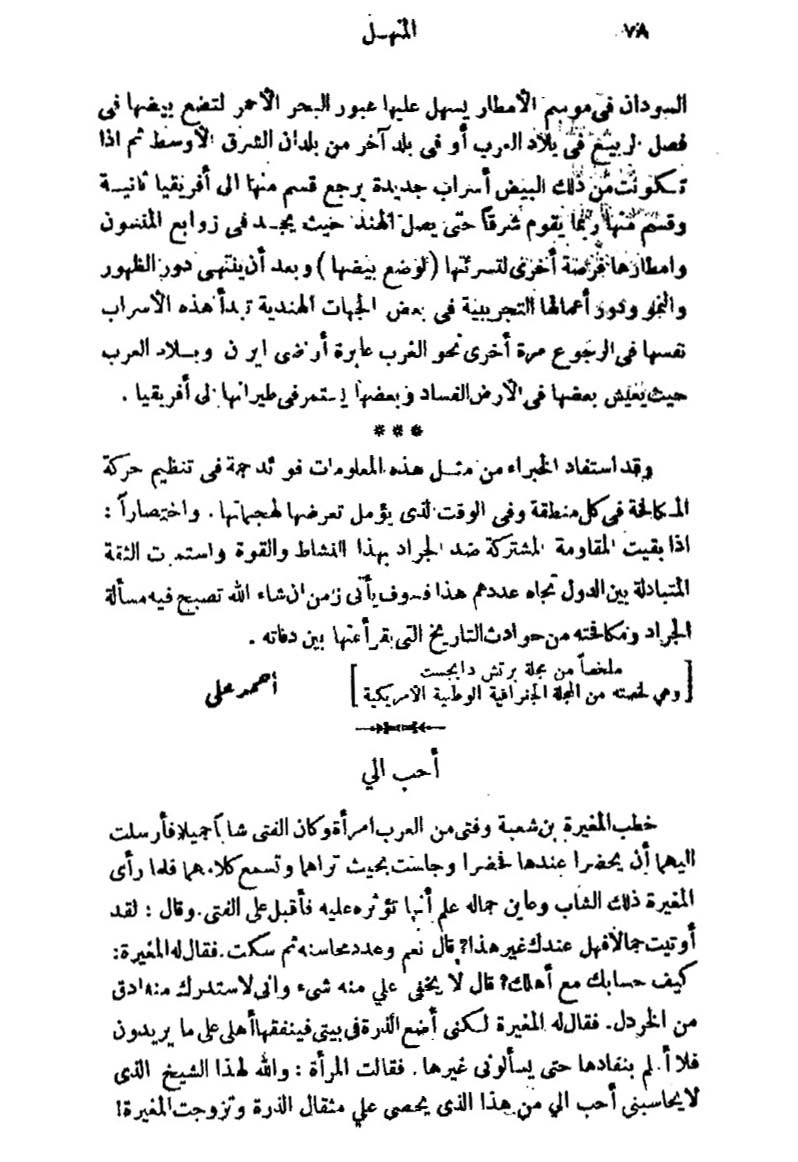 ٧٨ المنهل
السودان فى موسم الأمطار يسهل عليها عبور البحر الأحمر لتضع بيضها فى
فصل الربيع فى بلاد العرب أو فى بلد آخر من بلدان الشرق الأوسط ثم اذا
تكونت من ذلك البيض أسراب جديدة يرجع قسم منها الى أفريقيا ثانية
وقسم منها ربما يقوم شرقاً حتى يصل الهند حيث يجد فى زوابع المنسون
وامطارها فرصة أخرى لتسرئتها (لوضع بيضها) وبعد أن ينتهى دور الظهور
والنمو ودور أعمالها التجريبية فى بعض الجهات الهندية تبدأ هذه الأسراب
نفسها فى الرجوع مرة أخرى نحو الغرب عابرة أراضى ايران وبلاد العرب
حيث يعيش بعضها فى الأرض الفساد وبعضها يستمر فى طيرانها الى أفريقيا .
* * *
وقد استفاد الخبراء من مثل هذه المعلومات فوائد جمة فى تنظيم حركة
المكافحة فى كل منطقة وفى الوقت الذى يؤمل تعرضها لهجماتها . واختصاراً :
اذا بقيت المقاومة المشتركة ضد الجراد بهذا النشاط والقوة واستمرت الثقة
المتبادلة بين الدول تجاه عددهم هذا فسوف يأتى زمن ان شاء الله تصبح فيه مسألة
الجراد ومكافحته من حوادث التاريخ التى يقرأ عنها بين دفاته .
[ ملخصاً من مجلة برتش دايجست
وهي لخصته من المجلة الجغرافية الوطنية الأمريكية ] أحمد على
أحب الي
خطب المغيرة بن شعبة وفتى من العرب امرأة وكان الفتى شاباً جميلا فأرسلت
اليهما أن يحضرا عندها فحضرا وجلست بحيث تراهما وتسمع كلامهما فلما رأى
المغيرة ذلك الشاب وعاين جماله علم أنها تؤثره عليه فأقبل على الفتى . وقال : لقد
أوتيت جمالا فهل عندك غير هذا؟ قال نعم وعدد محاسنه ثم سكت . فقال له المغيرة :
كيف حسابك مع أهلك؟ قال لا يخفى علي منه شيء وانى لاستدرك منه أدق
من الخردل . فقال له المغيرة لكنى أضع الذرة فى بيتى فينفقها أهلى على ما يريدون
فلا أعلم بنفادها حتى يسألونى غيرها . فقالت المرأة : والله لهذا الشيخ الذى
لا يحاسبنى أحب الي من هذا الذى يحصى علي مثقال الذرة وتزوجت المغيرة!